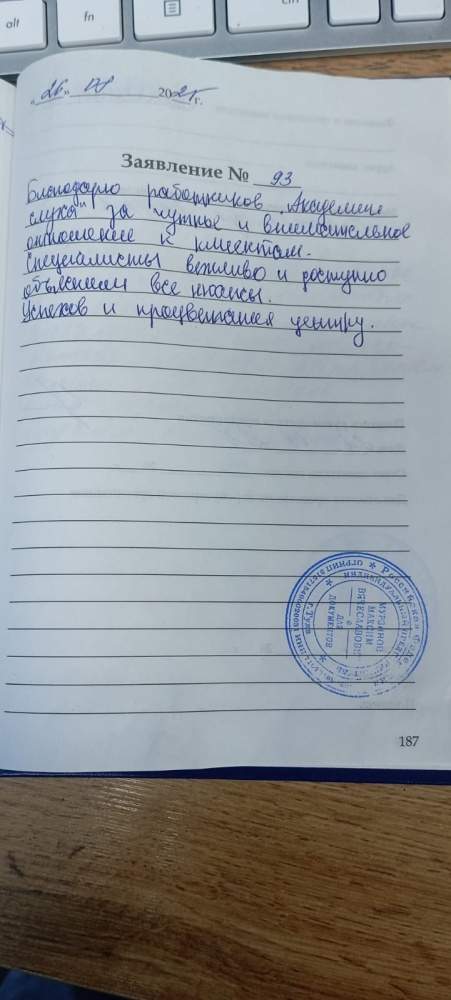 alt
fn
ctrl
„26“ 08 2025 г.
Заявление № 93
Благодарю работников „Академии
слуха“ за чуткое и внимательное
отношение к клиентам.
Специалисты вежливо и доступно
объяснили все нюансы.
Успехов и процветания центру.
Российская
ИНДИВИДУАЛЬНЫЙ
ОГРНИП
МАКСИМ
ВЯЧЕСЛАВОВИЧ
ДЛЯ
ДОКУМЕНТОВ
г. Тула
187